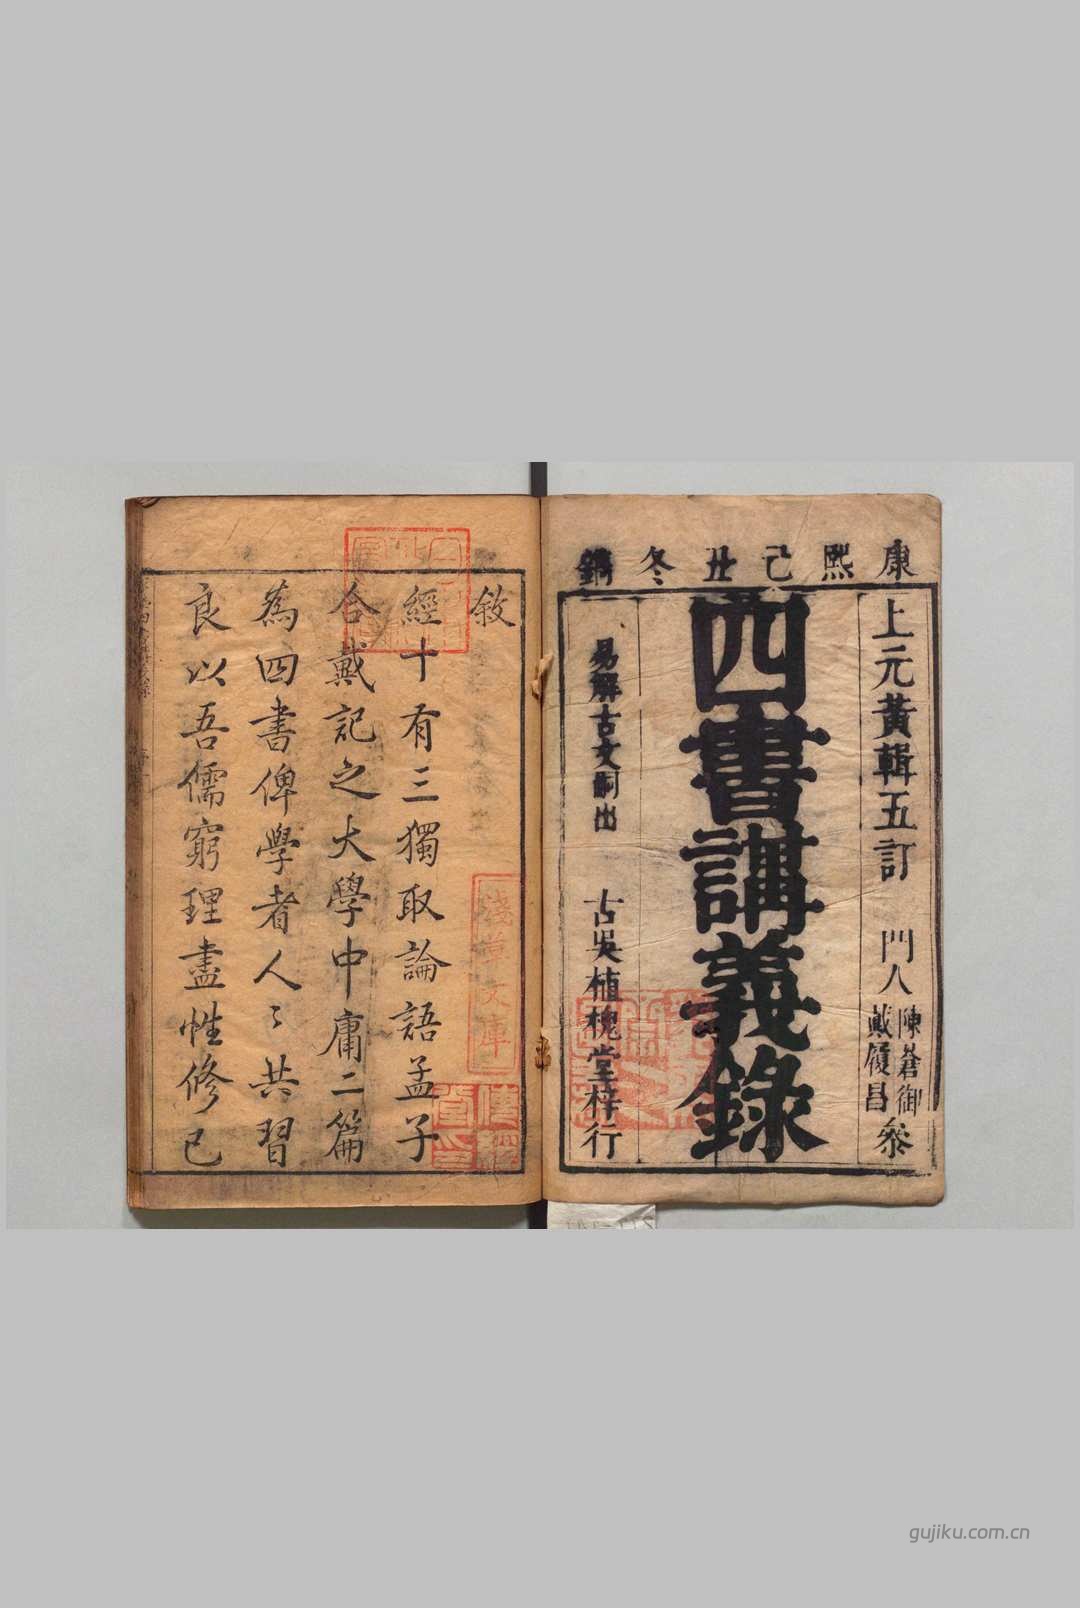 康熙己丑冬鐫
上元黃輯五訂
門人
陳蒼御
戴履昌
參
四書講義錄
易解古文嗣出
古吳植槐堂梓行
敘
經十有三獨取論語孟子
合戴記之大學中庸二篇
為四書俾學者人〻共習
良以吾儒窮理盡性修己
淺草文庫
gujiku.com.cn